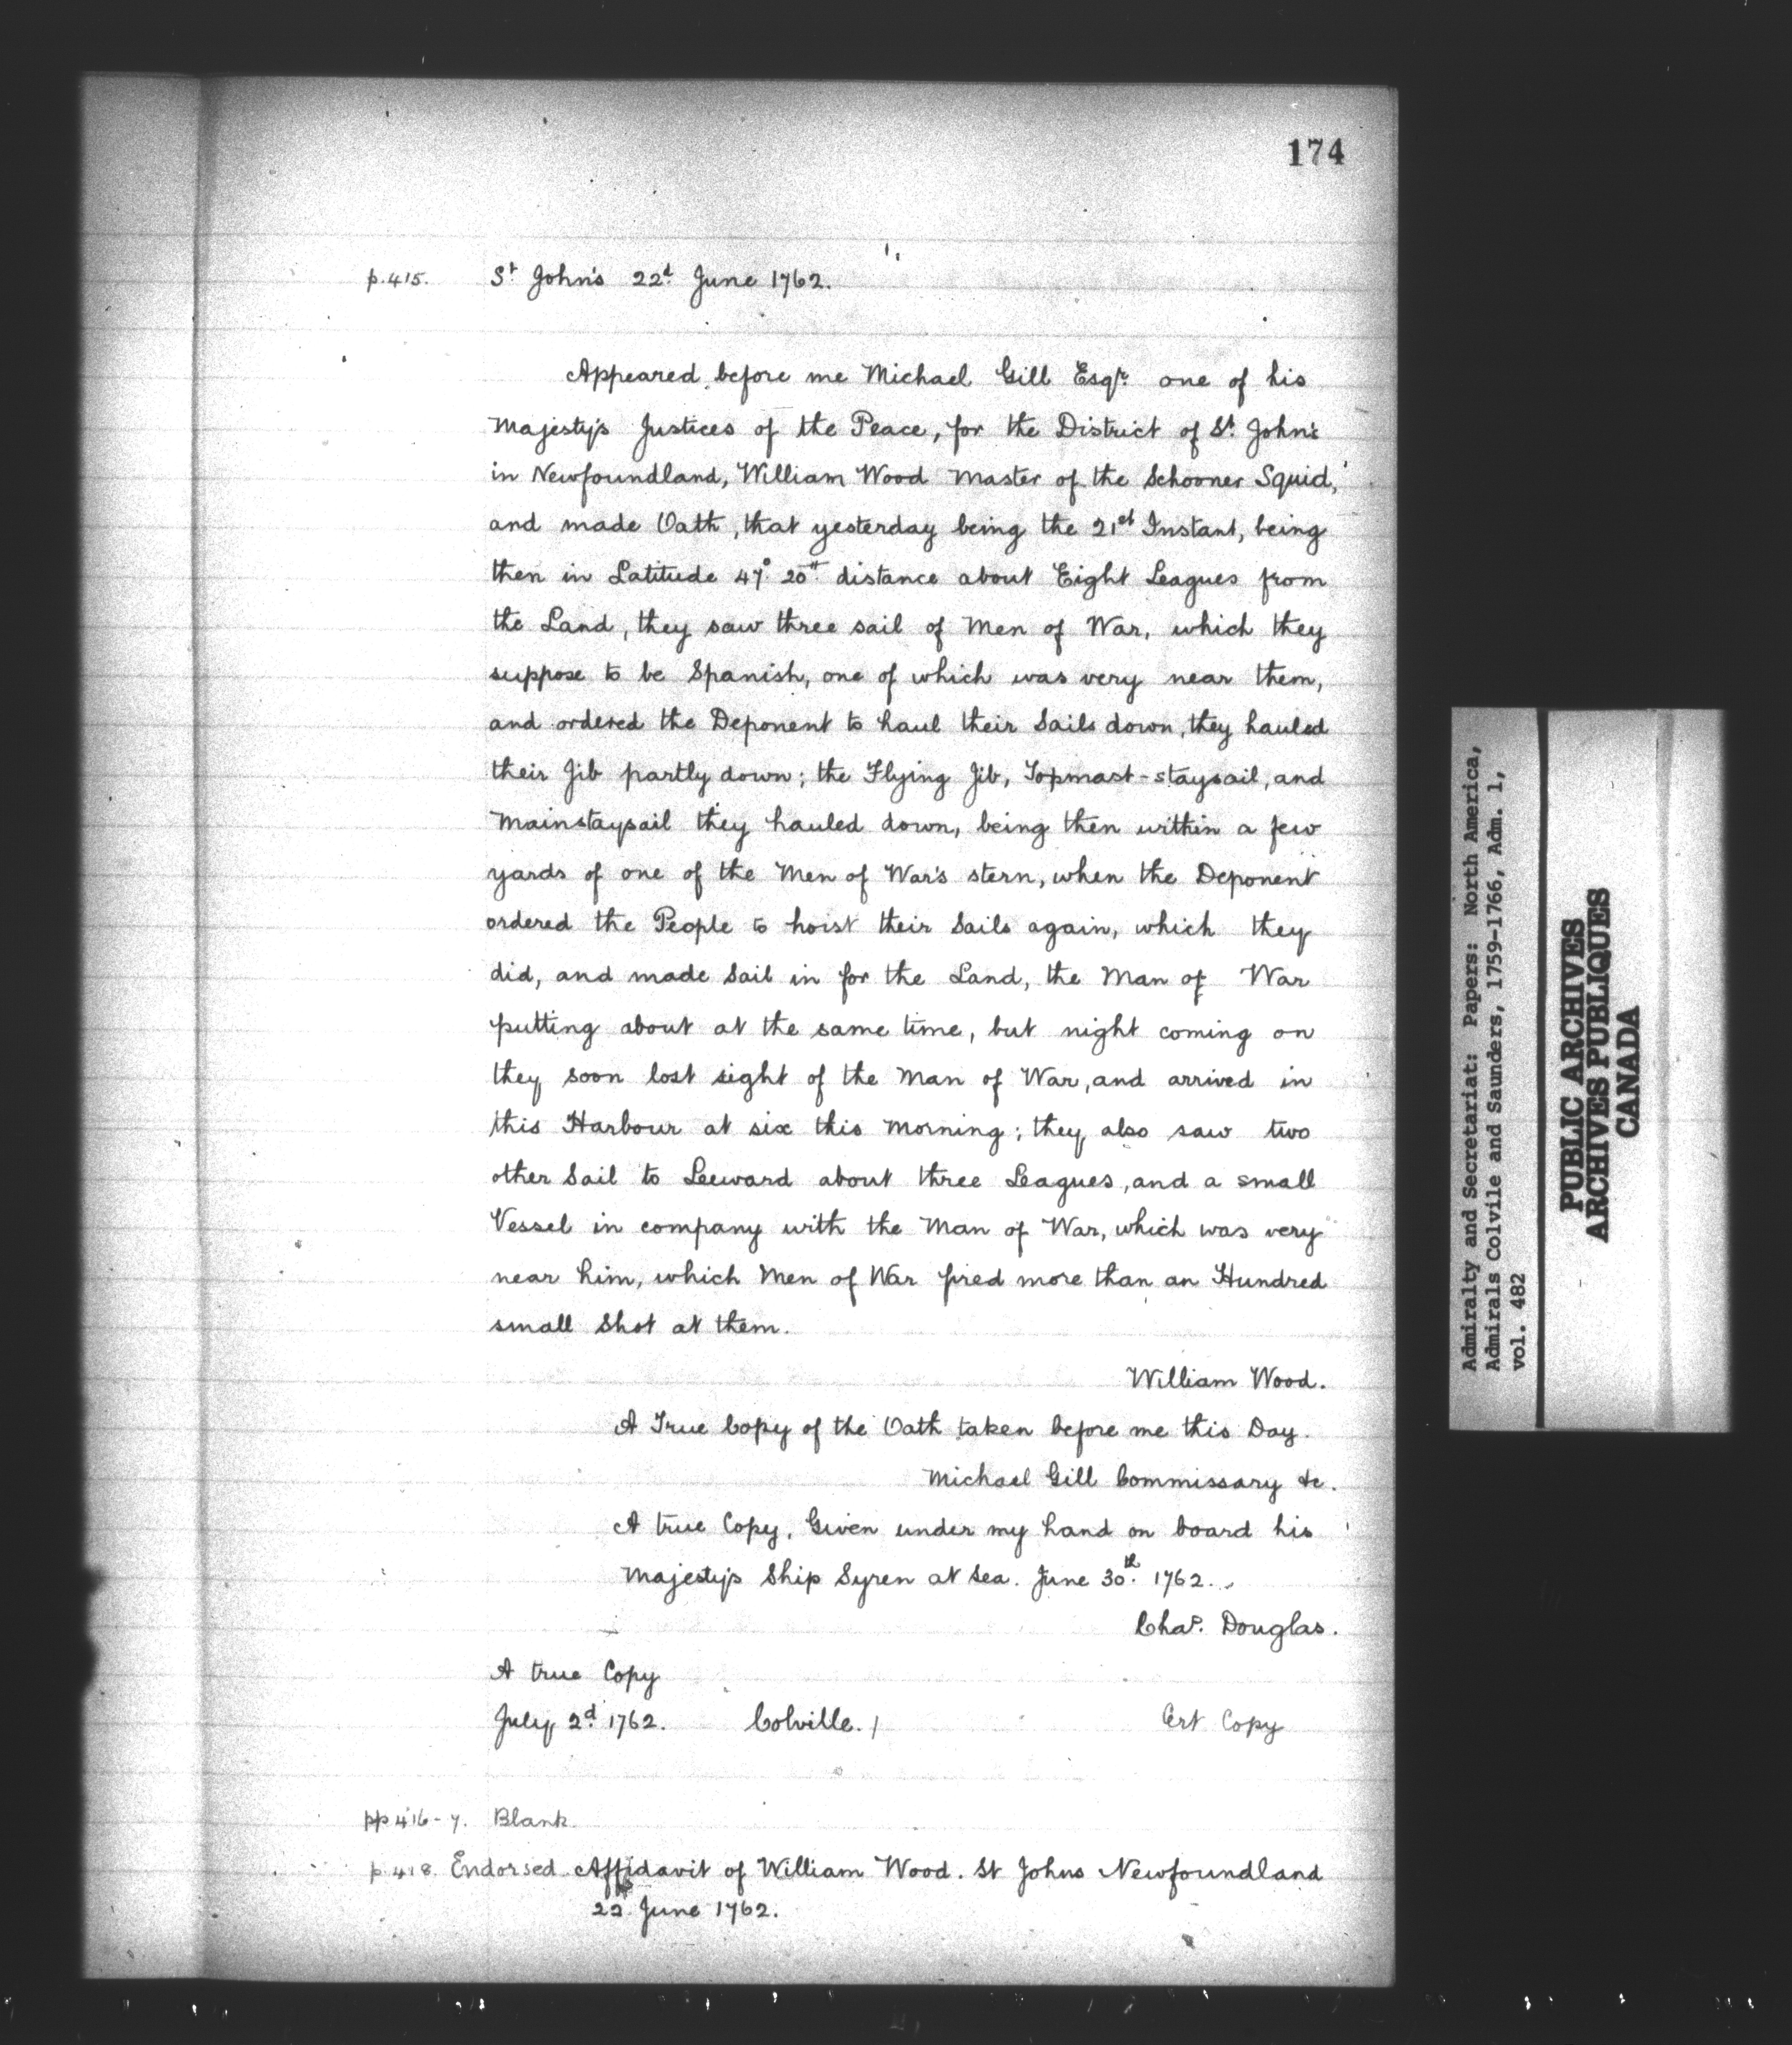 174
p.415. St John's 22d June 1762.
Appeared before me Michael Gill Esqr. one of his
Majesty's Justices of the Peace, for the District of St. John's
in Newfoundland, William Wood Master of the Schooner Squid,
and made Oath, that yesterday being the 21st Instant, being
then in Latitude 47° 20" distance about Eight Leagues from
the Land, they saw three sail of Men of War, which they
suppose to be Spanish, one of which was very near them,
and ordered the Deponent to haul their Sails down, they hauled
their Jib partly down; the Flying Jib, Topmast-staysail, and
Mainstaysail they hauled down, being then within a few
yards of one of the Men of War's stern, when the Deponent
ordered the People to hoist their Sails again, which they
did, and made Sail in for the Land, the Man of War
putting about at the same time, but night coming on
they soon lost sight of the Man of War, and arrived in
this Harbour at six this Morning; they also saw two
other Sail to Leeward about three Leagues, and a small
Vessel in company with the Man of War, which was very
near him, which Men of War fired more than an Hundred
small Shot at them.
William Wood.
A True Copy of the Oath taken before me this Day.
Michael Gill Commissary &c.
A true Copy, Given under my hand on board his
Majesty's Ship Syren at Sea. June 30th. 1762.
Chas. Douglas.
A true Copy
July 2d. 1762. Colville. / Cert Copy
pp 416-7. Blank.
p 418. Endorsed Affidavit of William Wood. St Johns Newfoundland
22d June 1762.
Admiralty and Secretariat: Papers: North America,
Admirals Colvile and Saunders, 1759-1766, Adm. 1,
vol. 482
PUBLIC ARCHIVES
ARCHIVES PUBLIQUES
CANADA